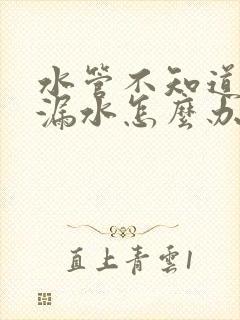 水管不知道
漏水怎麼办
直上青雲1